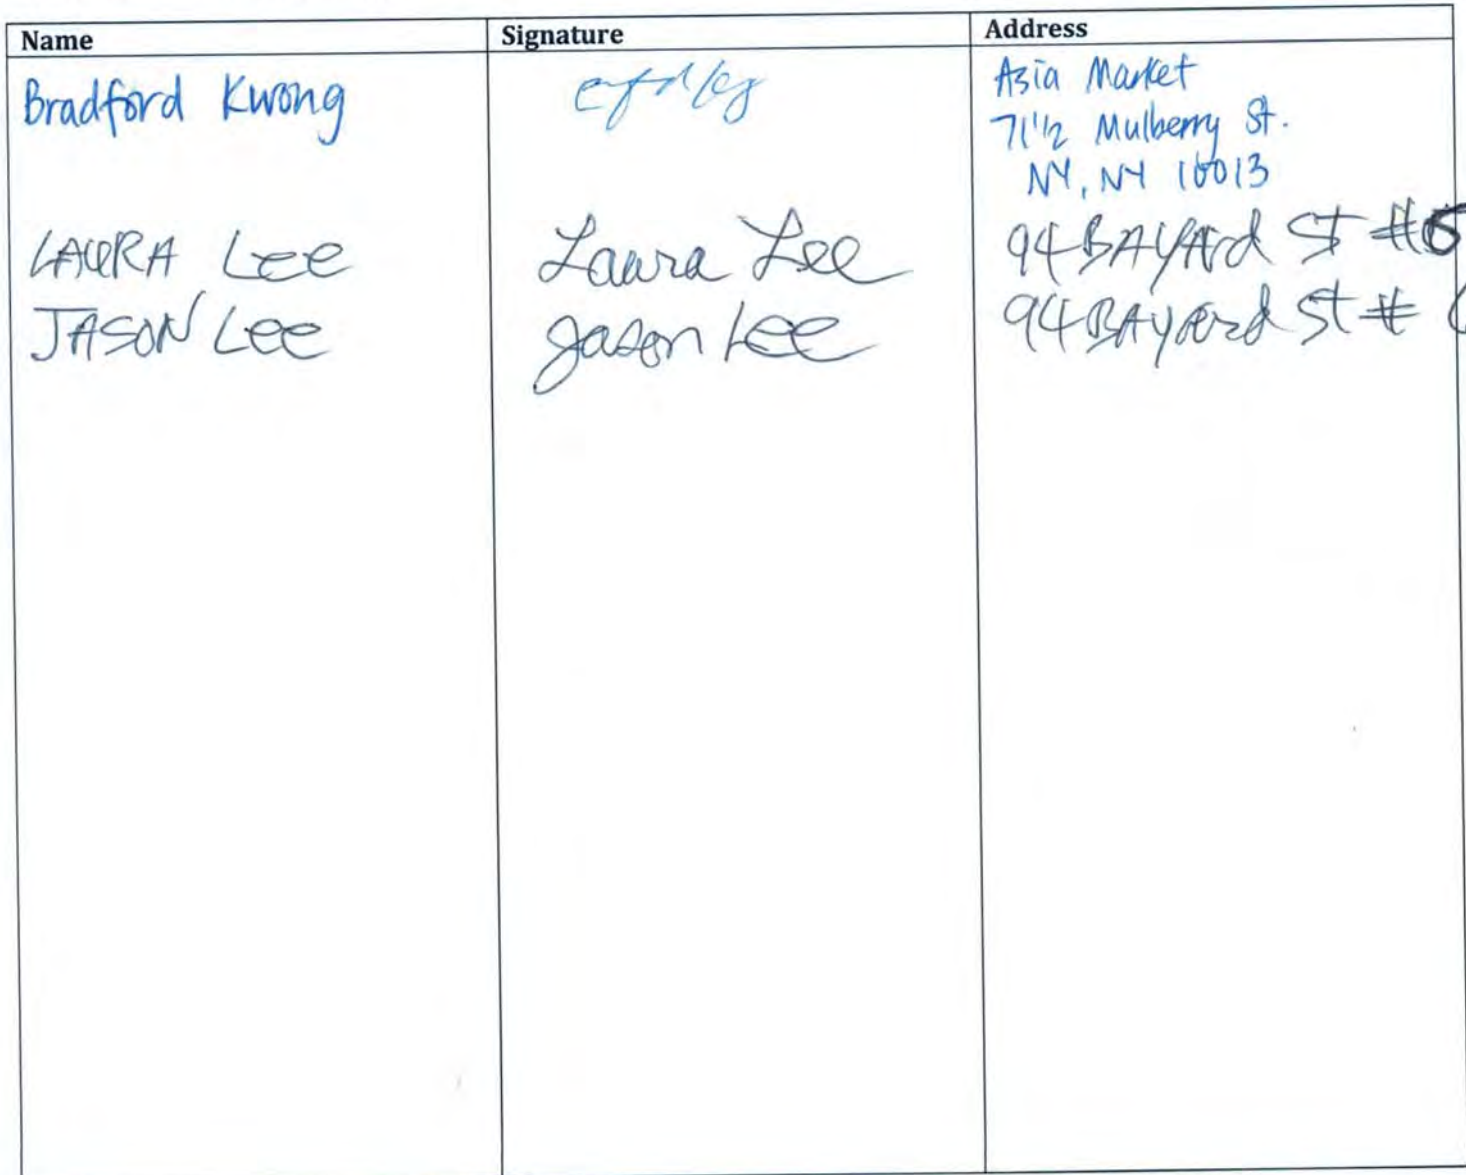 Name Signature Address
Bradford Kwong
Asia Market
71 1/2 Mulberry St.
NY, NY 10013
LAURA Lee Laura Lee 94 BAYARd St #
JASON Lee Jason Lee 94 BAYARd St #